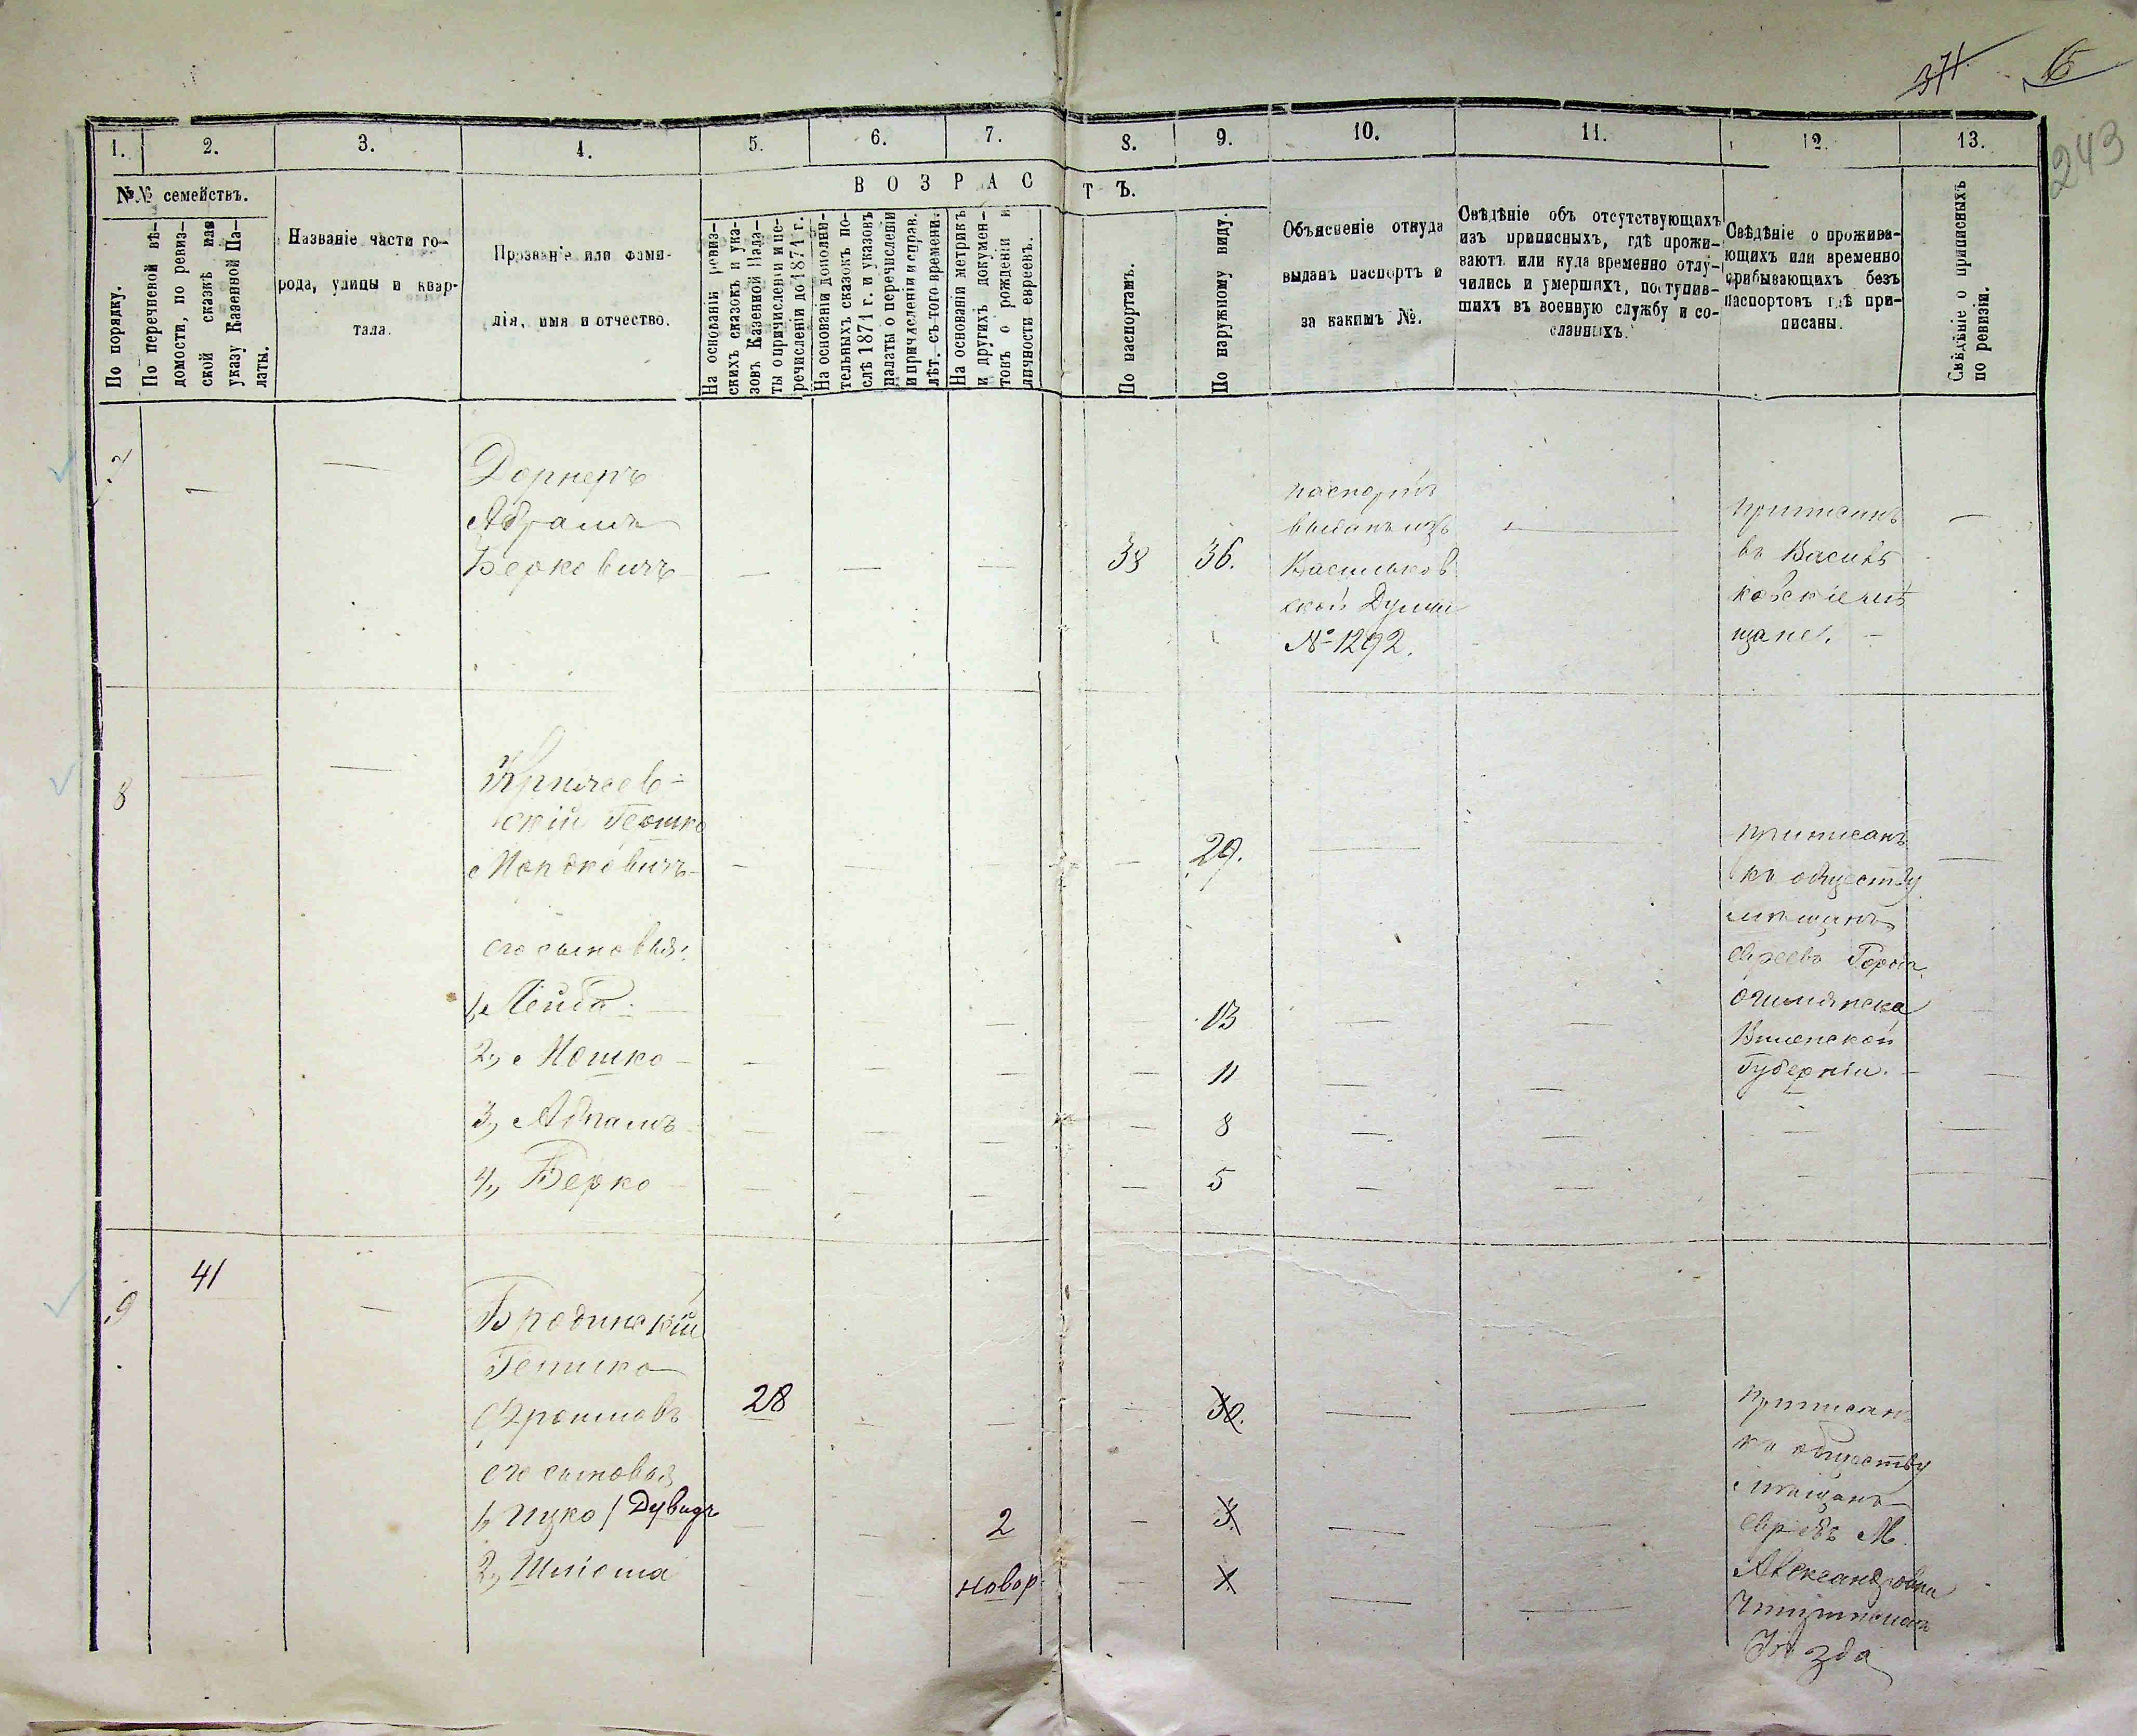 371. 6
243
1. 2. 3. 4. 5. 6. 7. 8. 9. 10. 11. 12. 13.
№№ семействъ.
По порядку.
По перечневой вѣ-
домости, по ревиз-
ской сказкѣ или
указу Казенной Па-
латы.
Названіе части го-
рода, улицы и квар-
тала.
Прозваніе или фами-
лія, имя и отчество.
ВОЗРАСТЪ.
На основаніи ревиз-
скихъ сказокъ и ука-
зовъ Казенной Пала-
ты о причислени и пе-
речисленіи до 1874 г.
На основаніи дополни-
тельныхъ сказокъ по-
слѣ 1874 г. и указовъ
палаты о перечислени
и причисленіи и справ.
лѣт. съ того времени.
На основаніи метрикъ
и другихъ докумен-
товъ о рожденіи и
личности евреевъ.
По паспортамъ.
По наружному виду.
Объясненіе откуда
выданъ паспортъ и
за какимъ №.
Свѣдѣніе объ отсутствующихъ
изъ приписныхъ, гдѣ прожи-
ваютъ или куда временно отлу-
чились и умершихъ, поступив-
шихъ въ военную службу и со-
сланныхъ.
Свѣдѣніе о прожива-
ющихъ или временно
прибывающихъ безъ
паспортовъ гдѣ при-
писаны.
Свѣдѣніе о приписныхъ
по ревизіи.
7 — —
Дорнеръ
Абрамъ
Берковичъ — — — 38 36.
паспортъ
выданъ изъ
Васильков
ской Думы
№ 1292.
—
приписанъ
въ Василь
ковскіе мѣ
щане. —
—
8 — —
скій Гершко
Мордковичъ — — — — 29. — —
приписанъ
къ обществу
мѣщанъ
евреевъ Города
Ошмянска
Виленской
Губерніи. —
его сыновья:
1, Лейба — — — — — 13 — —
2, Мошко — — — — — 11 — — —
3, Абрамъ — — — — 8 — — — —
4, Берко — — — — 5 — — — —
9 41 —
Бродинскій
Гершко
Фроимовъ 28 — — — 30. — —
его сыновья
1, Ицко / Дувидъ — — 2 — 3. — —
2, Шліома — — новор. — 1 — —
приписанъ
къ обществу
мѣщанъ
евреевъ М.
Александровки
Уѣзда